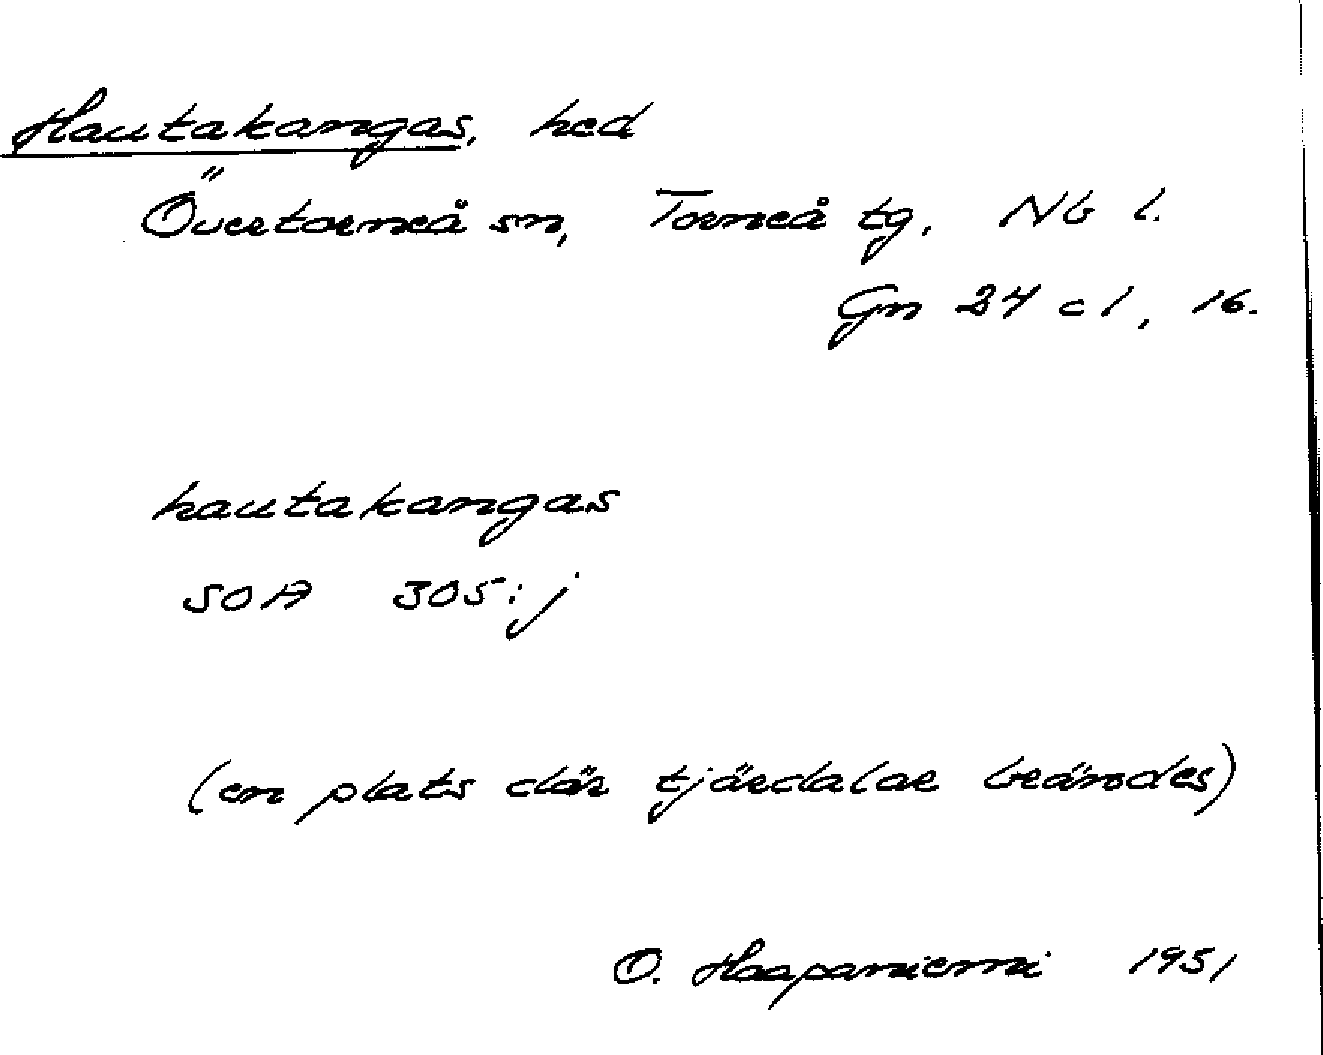 Hautakangas, hed
Övertorneå sn, Torneå tg, Nb l.
Gn 24 c1, 16.
hautakangas
SOA 305:j
(en plats där tjärdalar brändes)
O. Haapaniemi 1951